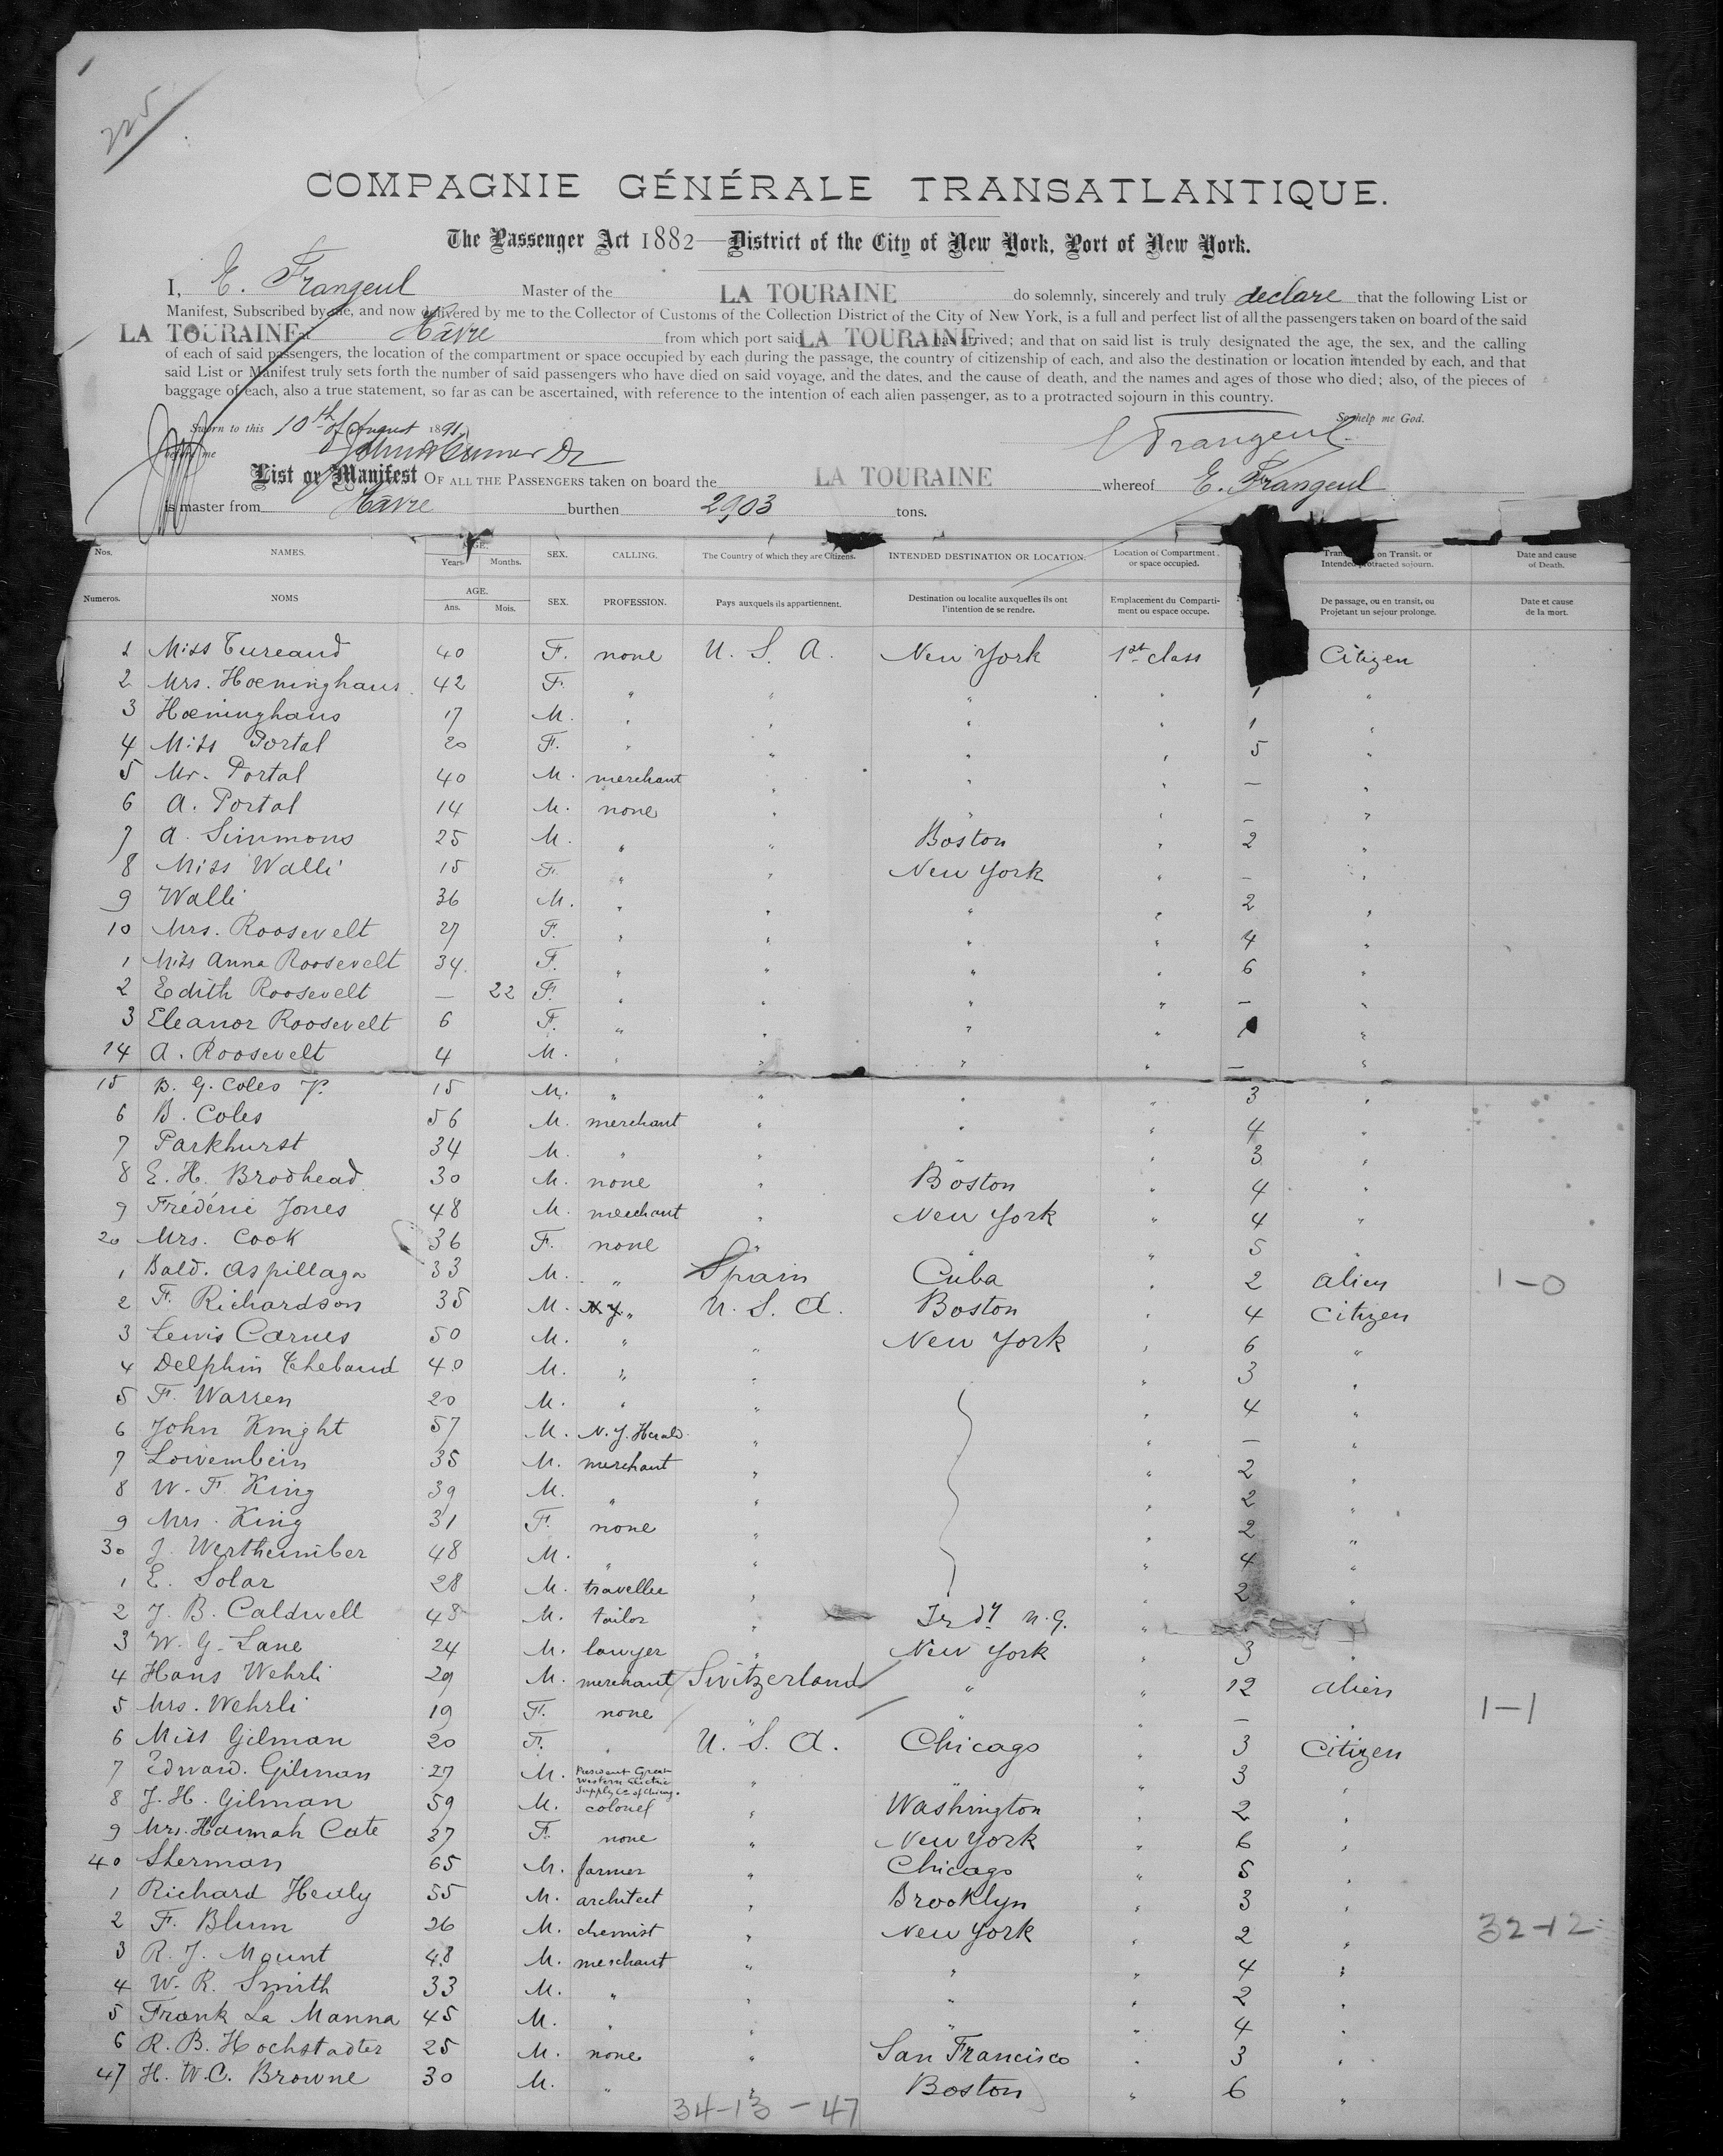 225
COMPAGNIE GÉNÉRALE TRANSATLANTIQUE.
The Passenger Act 1882—District of the City of New York, Port of New York.
I, E. Frangeul Master of the LA TOURAINE do solemnly, sincerely and truly declare that the following List or
Manifest, Subscribed by me, and now delivered by me to the Collector of Customs of the Collection District of the City of New York, is a full and perfect list of all the passengers taken on board of the said
LA TOURAINE at Hâvre from which port said LA TOURAINE has arrived; and that on said list is truly designated the age, the sex, and the calling
of each of said passengers, the location of the compartment or space occupied by each during the passage, the country of citizenship of each, and also the destination or location intended by each, and that
said List or Manifest truly sets forth the number of said passengers who have died on said voyage, and the dates, and the cause of death, and the names and ages of those who died; also, of the pieces of
baggage of each, also a true statement, so far as can be ascertained, with reference to the intention of each alien passenger, as to a protracted sojourn in this country.
Sworn to this 10th of August 1891, So help me God.
before me E Frangeul.
List or Manifest OF ALL THE PASSENGERS taken on board the LA TOURAINE whereof E. Frangeul
is master from Hâvre burthen 2903 tons.
Nos. NAMES. AGE. Years. Months. SEX. CALLING. The Country of which they are Citizens. INTENDED DESTINATION OR LOCATION. Location of Compartment or space occupied. on Transit, or Intended protracted sojourn. Date and cause of Death.
Numeros. NOMS AGE. Ans. Mois. SEX. PROFESSION. Pays auxquels ils appartiennent. Destination ou localite auxquelles ils ont l'intention de se rendre. Emplacement du Compartiment ou espace occupe. De passage, ou en transit, ou Projetant un sejour prolonge. Date et cause de la mort.
1 Miss Tureaud 40 F. none U. S. A. New York 1st class Citizen
2 Mrs. Hoeninghaus 42 F. " " " " 1 "
3 Hoeninghaus 17 M. " " " " 1 "
4 Miss Portal 20 F. " " " " 5 "
5 Mr. Portal 40 M. merchant " " " — "
6 A. Portal 14 M. none " " " — "
7 A. Simmons 25 M. " " Boston " 2 "
8 Miss Walli 15 F. " " New York " — "
9 Walli 36 M. " " " " 2 "
10 Mrs. Roosevelt 27 F. " " " " 4 "
1 Miss Anna Roosevelt 34. F. " " " " 6 "
2 Edith Roosevelt — 22 F. " " " " — "
3 Eleanor Roosevelt 6 F. " " " " "
14 A. Roosevelt 4 M. " " " " — "
15 B. G. Coles Jr. 15 M. " " " " 3 "
6 B. Coles 56 M. merchant " " " 4 "
7 Parkhurst 34 M. " " " " 3 "
8 E. H. Brodhead 30 M. none " Boston " 4 "
9 Frédéric Jones 48 M. merchant " New York " 4 "
20 Mrs. Cook 36 F. none " " " 5 "
1 Bald. Aspillaga 33 M. " Spain Cuba " 2 alien 1-0
2 F. Richardson 35 M. N.Y. " U. S. A. Boston " 4 Citizen
3 Lewis Carnes 50 M. " " New York " 6 "
4 Delphin Thebaud 40 M. " " " 3 "
5 F. Warren 20 M. " " " 4 "
6 John Knight 57 M. N.Y. Herald " " — "
7 Loivembein 35 M. merchant " " 2 "
8 W. F. King 39 M. " " " 2 "
9 Mrs. King 31 F. none " " 2 "
30 J. Wertheimber 48 M. " " " 4 "
1 E. Solar 28 M. traveller " " 2 "
2 J. B. Caldwell 48 M. tailor " "
3 W. G. Lane 24 M. lawyer " New York " 3 "
4 Hans Wehrli 29 M. merchant Switzerland " " 12 alien
5 Mrs. Wehrli 19 F. none " " " — " 1-1
6 Miss Gilman 20 F. " U. S. A. Chicago " 3 Citizen
7 Edward. Gilman 27 M. President Great Western Electric Supply Co of Chicago. " " " 3 "
8 J. H. Gilman 59 M. colonel " Washington " 2 "
9 Mrs. Hannah Cate 37 F. none " New York " 6 "
40 Sherman 65 M. farmer " Chicago " 5 "
1 Richard 55 M. architect " Brooklyn " 3 "
2 F. Blum 26 M. chemist " New York " 2 " 32-12
3 R. J. Mount 48 M. merchant " " " 4 "
4 W. R. Smith 33 M. " " " " 2 "
5 Frank La Manna 45 M. " " " " 4 "
6 R. B. Hochstadter 25 M. none " San Francisco " 3 "
47 H. W. C. Browne 30 M. " " Boston " 6 "
34-13-47